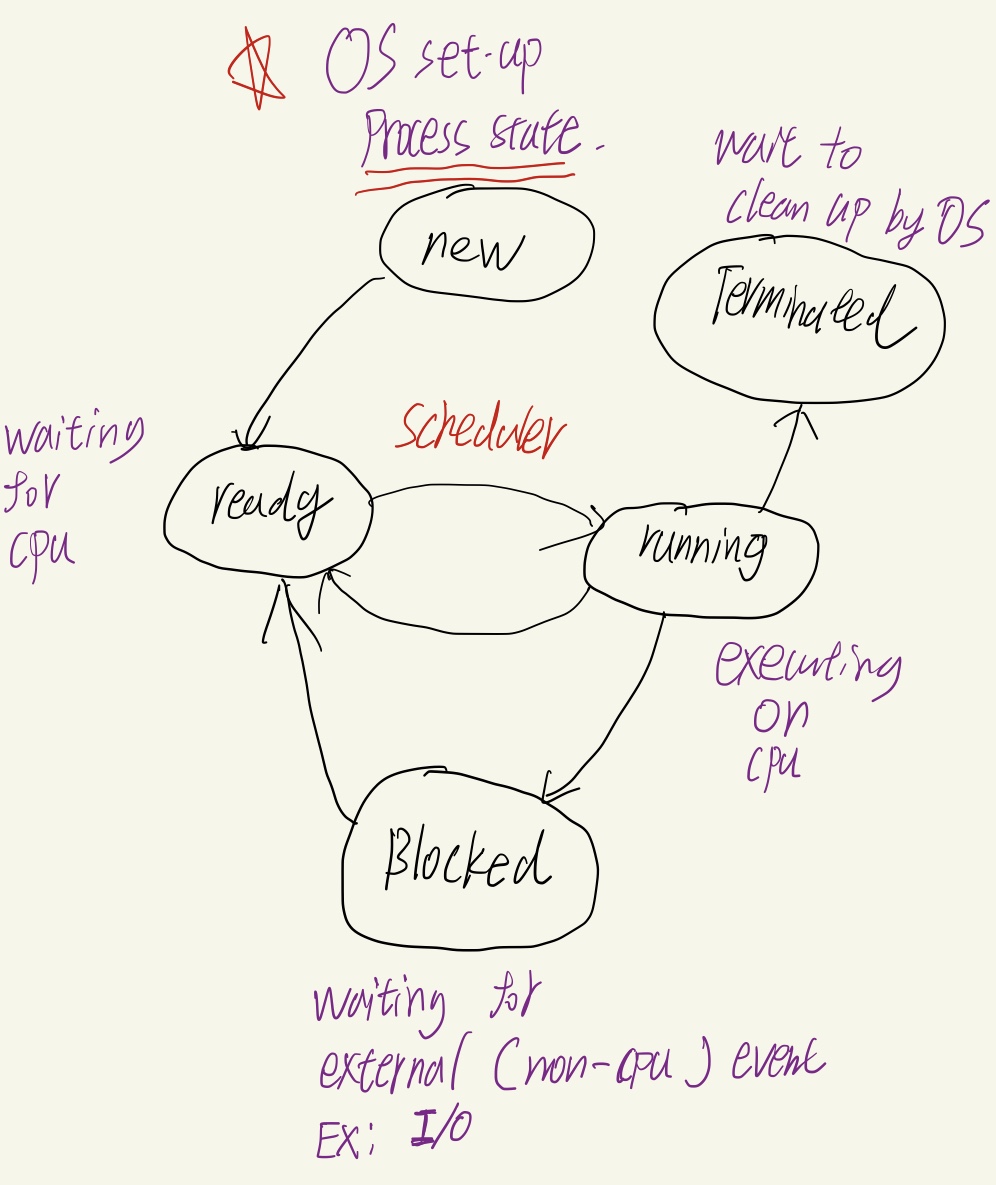 OS set-up
Process state.
new
wait to
clean up by OS
Terminated
waiting
for
cpu
ready
scheduler
running
executing
on
cpu
Blocked
waiting for
external (non-cpu) event
Ex: I/O